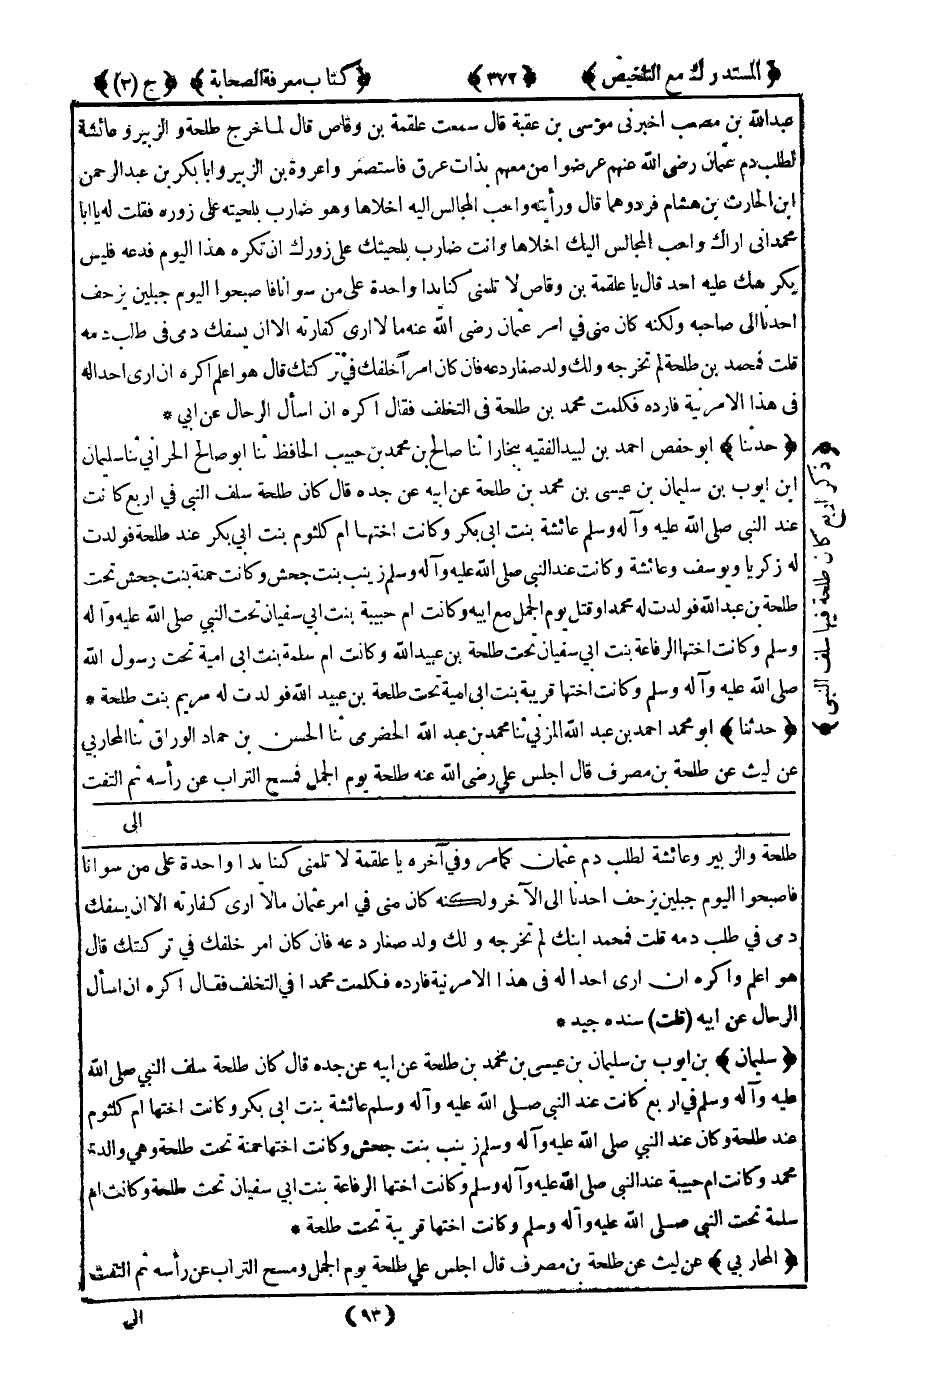 ﴿ المستدرك مع التلخيص ﴾ ﴿ ٣٧٢ ﴾ ﴿ كتاب معرفة الصحابة ﴾ ﴿ ج (٣) ﴾
عبدالله بن مصعب اخبرنى موسى بن عقبة قال سمعت علقمة بن وقاص قال لماخرج طلحة والزبير وعائشة
لطلب دم عثمان رضى الله عنهم عرضوا من معهم بذات عرق فاستصغروا عروة بن الزبير وابا بكر بن عبدالرحمن
ابن الحارث بن هشام فردوهما قال ورأيته واحب المجالس اليه اخلاها وهو ضارب بلحيته على زوره فقلت له يا ابا
محمد انى اراك واحب المجالس اليك اخلاها وانت ضارب بلحيتك على زورك ان تكره هذا اليوم فدعه فليس
يكرهك عليه احد قال يا علقمة بن وقاص لا تلمنى كنا يدا واحدة على من سوانا فاصبحوا اليوم جبلين يزحف
احدنا الى صاحبه ولكنه كان منى في امر عثمان رضى الله عنه ما لا ارى كفارته الا ان يسفك دمى فى طلب دمه
قلت فمحمد بن طلحة لم تخرجه ولك ولد صغار دعه فان كان امر أخلفك في تركتك قال هو اعلم اكره ان ارى احدا له
فى هذا الامر نية فارده فكلمت محمد بن طلحة فى التخلف فقال اكره ان اسأل الرجال عن ابي *
﴿ حدثنا ﴾ ابو حفص احمد بن لبيد الفقيه ببخارا ثنا صالح بن محمد بن حبيب الحافظ ثنا ابو صالح الحرانى ثنا سليمان
ابن ايوب بن سليمان بن عيسى بن محمد بن طلحة عن ابيه عن جده قال كان طلحة سلف النبى في اربع كانت
عند النبي صلى الله عليه وآله وسلم عائشة بنت ابى بكر وكانت اختها ام كلثوم بنت ابي بكر عند طلحة فولدت
له زكريا ويوسف وعائشة وكانت عند النبي صلى الله عليه وآله وسلم زينب بنت جحش وكانت حمنة بنت جحش تحت
طلحة بن عبدالله فولدت له محمدا وقتل يوم الجمل مع ابيه وكانت ام حبيبة بنت ابي سفيان تحت النبي صلى الله عليه وآله
وسلم وكانت اختها الرفاعة بنت ابي سفيان تحت طلحة بن عبيدالله وكانت ام سلمة بنت ابى امية تحت رسول الله
صلى الله عليه وآله وسلم وكانت اختها قريبة بنت ابى امية تحت طلحة بن عبيد الله فولدت له مريم بنت طلحة *
﴿ حدثنا ﴾ ابو محمد احمد بن عبد الله المزني ثنا محمد بن عبد الله الحضرمى ثنا الحسن بن حماد الوراق ثنا المحاربي
عن ليث عن طلحة بن مصرف قال اجلس علي رضى الله عنه طلحة يوم الجمل فمسح التراب عن رأسه ثم التفت
الى
﴿ ذكر اربع كان طلحة فيها سلف النبى ﴾
طلحة والزبير وعائشة لطلب دم عثمان كما مر وفي آخره يا علقمة لا تلمنى كنا يدا واحدة على من سوانا
فاصبحوا اليوم جبلين يزحف احدنا الى الآخر ولكنه كان منى في امر عثمان مالا ارى كفارته الا ان يسفك
دمى في طلب دمه قلت فمحمد ابنك لم تخرجه ولك ولد صغار دعه فان كان امر خلفك في تركتك قال
هو اعلم واكره ان ارى احدا له فى هذا الامر نية فارده فكلمت محمدا في التخلف فقال اكره ان اسأل
الرجال عن ابيه (قلت) سنده جيد *
﴿ سليمان ﴾ بن ايوب بن سليمان بن عيسى بن محمد بن طلحة عن ابيه عن جده قال كان طلحة سلف النبي صلى الله
عليه وآله وسلم في اربع كانت عند النبي صلى الله عليه وآله وسلم عائشة بنت ابى بكر وكانت اختها ام كلثوم
عند طلحة وكان عند النبي صلى الله عليه وآله وسلم زينب بنت جحش وكانت اختها حمنة تحت طلحة وهي والدة
محمد وكانت ام حبيبة عند النبى صلى الله عليه وآله وسلم وكانت اختها الرفاعة بنت ابي سفيان تحت طلحة وكانت ام
سلمة تحت النبى صلى الله عليه وآله وسلم وكانت اختها قريبة تحت طلحة *
﴿ المحاربي ﴾ عن ليث عن طلحة بن مصرف قال اجلس علي طلحة يوم الجمل ومسح التراب عن رأسه ثم التفت
(٩٣) الى